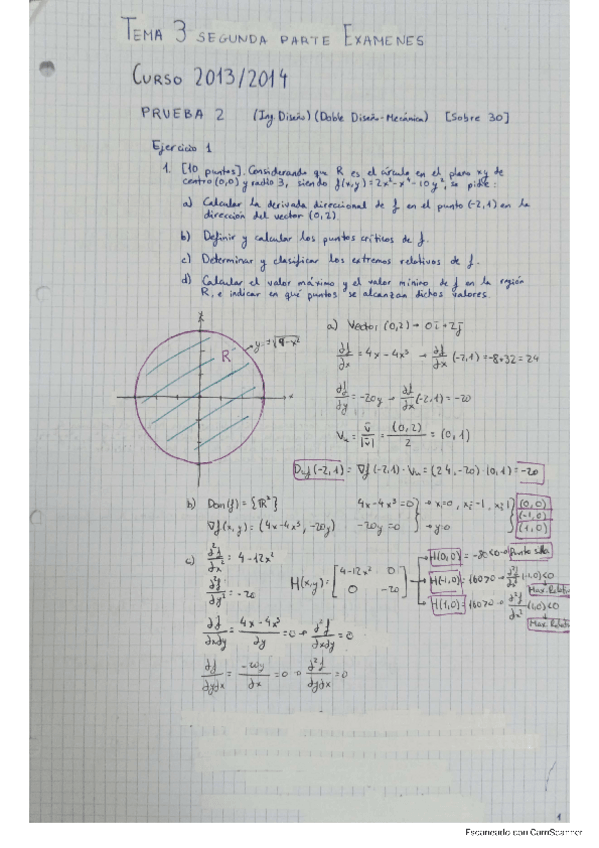 TEMA 3 SEGUNDA PARTE EXAMENES
CURSO 2013/2014
PRUEBA 2 (Ing. Diseño) (Doble Diseño-Mecánica) [Sobre 30]
Ejercicio 1
1. [10 puntos]. Considerando que R es el círculo en el plano xy de
centro (0,0) y radio 3, siendo f(x,y)=2x²-x⁴-10y², se pide:
a) Calcular la derivada direccional de f en el punto (-2,1) en la
dirección del vector (0,2).
b) Definir y calcular los puntos críticos de f.
c) Determinar y clasificar los extremos relativos de f.
d) Calcular el valor máximo y el valor mínimo de f en la región
R, e indicar en qué puntos se alcanzan dichos valores.
R
x
a) Vector (0,2) → 0i + 2j
∂f/∂x = 4x - 4x³ → ∂f/∂x (-2,1) = -8+32 = 24
∂f/∂y = -20y → ∂f/∂y (-2,1) = -20
Vu = v/|v| = (0,2)/2 = (0,1)
Duf(-2,1) = ∇f(-2,1) · Vu = (24,-20) · (0,1) = -20
b) Dom(f) = {ℝ²} 4x-4x³=0 → x=0, x=-1, x=1 (0,0)
(-1,0)
∇f(x,y) = (4x-4x³, -20y) -20y=0 → y=0 (1,0)
c) ∂²f/∂x² = 4-12x²
∂²f/∂y² = -20
H(x,y) = [4-12x² 0
0 -20]
H(0,0) = -80<0 → Punto silla
H(-1,0) = 160>0 → ∂²f/∂x² (-1,0)<0
Max. Relati
H(1,0) = 160>0 → ∂²f/∂x² (1,0)<0
Max. Relati
∂f/∂x∂y = 4x-4x³/∂y = 0 → ∂²f/∂x∂y = 0
∂f/∂y∂x = -20y/∂x = 0 → ∂²f/∂y∂x = 0
1
Escaneado con CamScanner